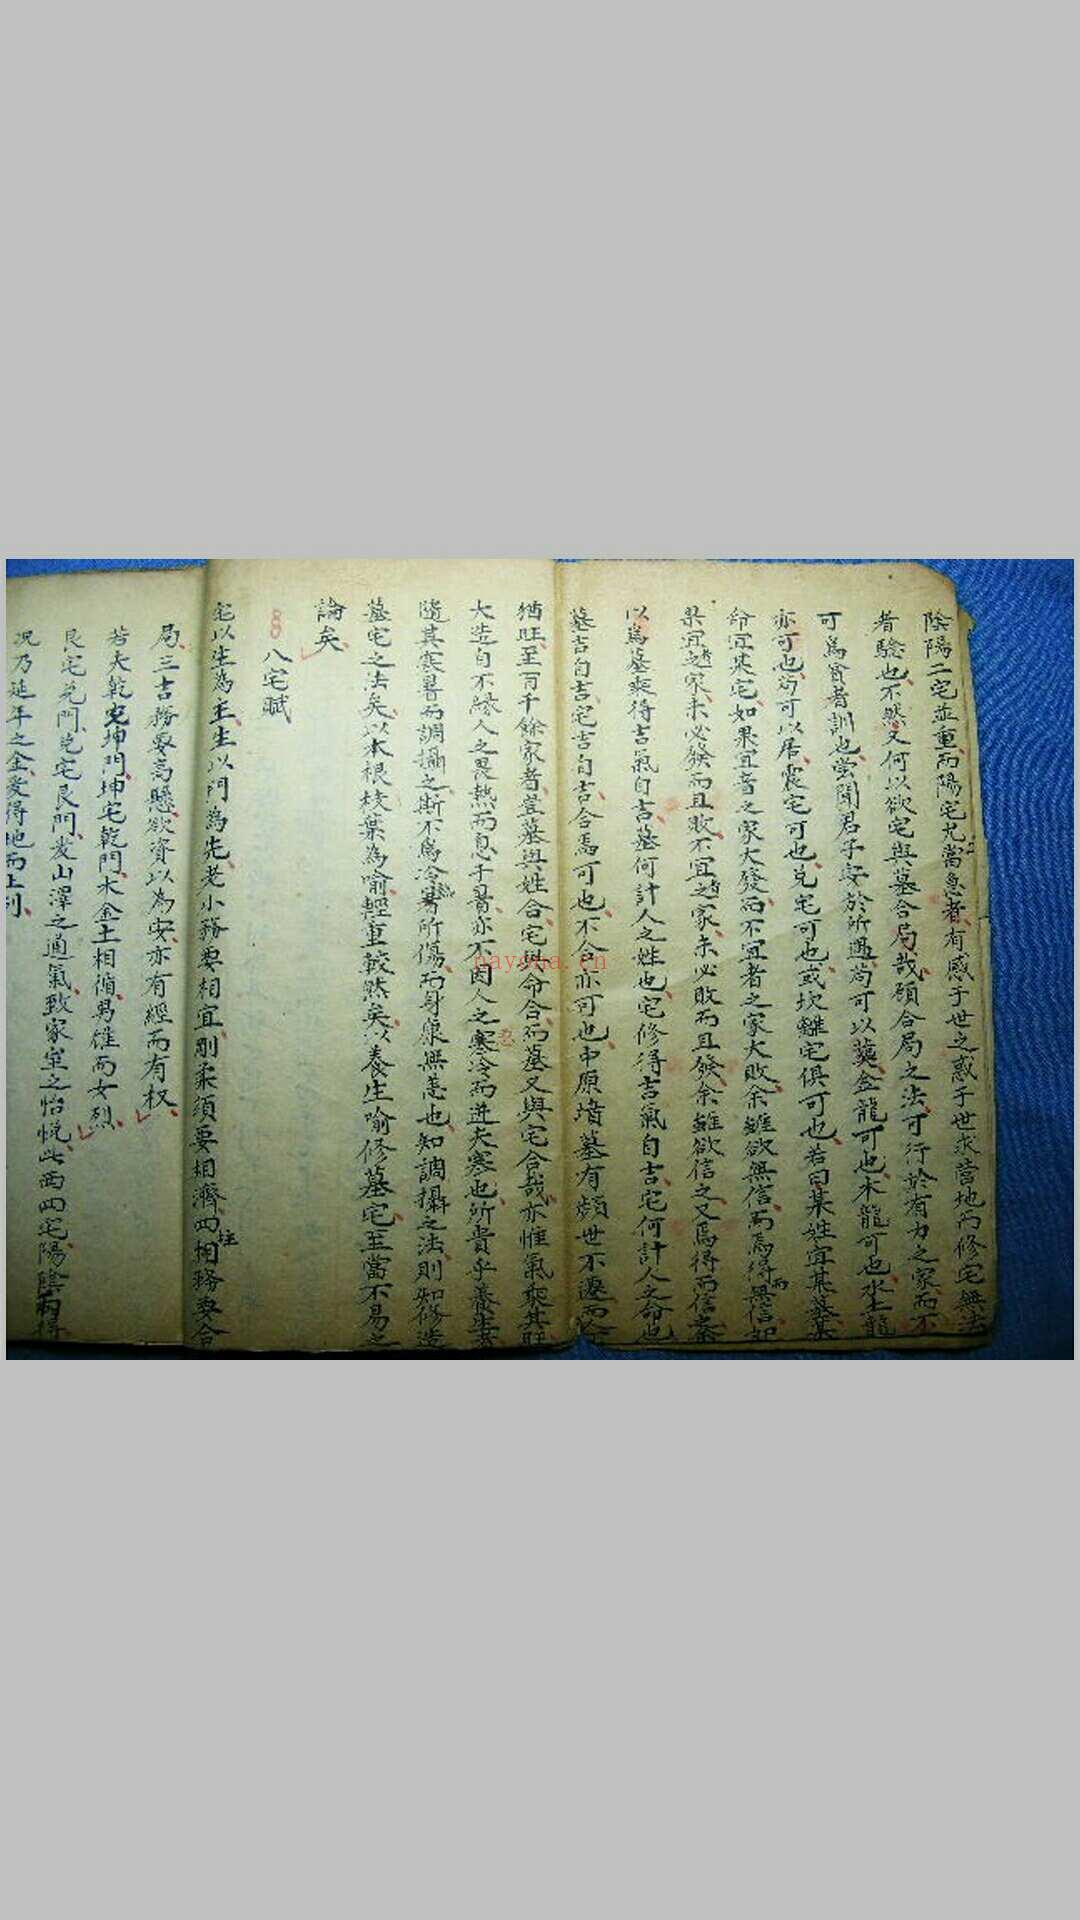 陰陽二宅並重而陽宅尤當急者有感于世之惑于世求营地而修宅無法
者驗也不然又何以欲宅與墓合局哉顧合局之法可行於有力之家而不
可為貧者訓也尝聞君子安於所遇苟可以葵金龍可也木龍可也水土龍
亦可也苟可以居震宅可也兑宅可也或坎離宅俱可也若曰某姓宜某墓某
命宜某宅如果宜者之家大發而不宜者之家大敗余雖欲無信而焉得而無信如
果宜者之家未必發而且敗不宜者之家未必敗而且發余雖欲信之又焉得而信之
以為墓乘得吉氣自吉墓何計人之姓也宅修得吉氣自吉宅何計人之命也
墓吉自吉宅吉自吉合焉可也不合亦可也中原墳墓有頗世不遷而
猶旺至百千餘家者豈墓與姓合宅與命合而墓又與宅合哉亦惟氣乘其旺
大造自不緣人之畏熱而息于暑亦不因人之惡寒冷而进大寒也所貴乎養生者
隨其寒暑而調攝之斯不爲冷熱暑所傷而身康無恙也知調攝之法則知修造
墓宅之法矣以本根枝葉為喻輕重較然矣以養生喻修墓宅至當不易之
論矣
八宅賦
宅以生為主生以門為先老小務要相宜剛柔須要相濟四柱相務要合
局三吉務要高懸欲資以為安亦有經而有权
若夫乾宅坤門坤宅乾門木金土相循男雄而女烈
艮宅兑門兑宅艮門发山澤之通氣致家室之怡悦此西四宅陽陰兩得
况乃延年之金爱得地而上列
nayona.cn